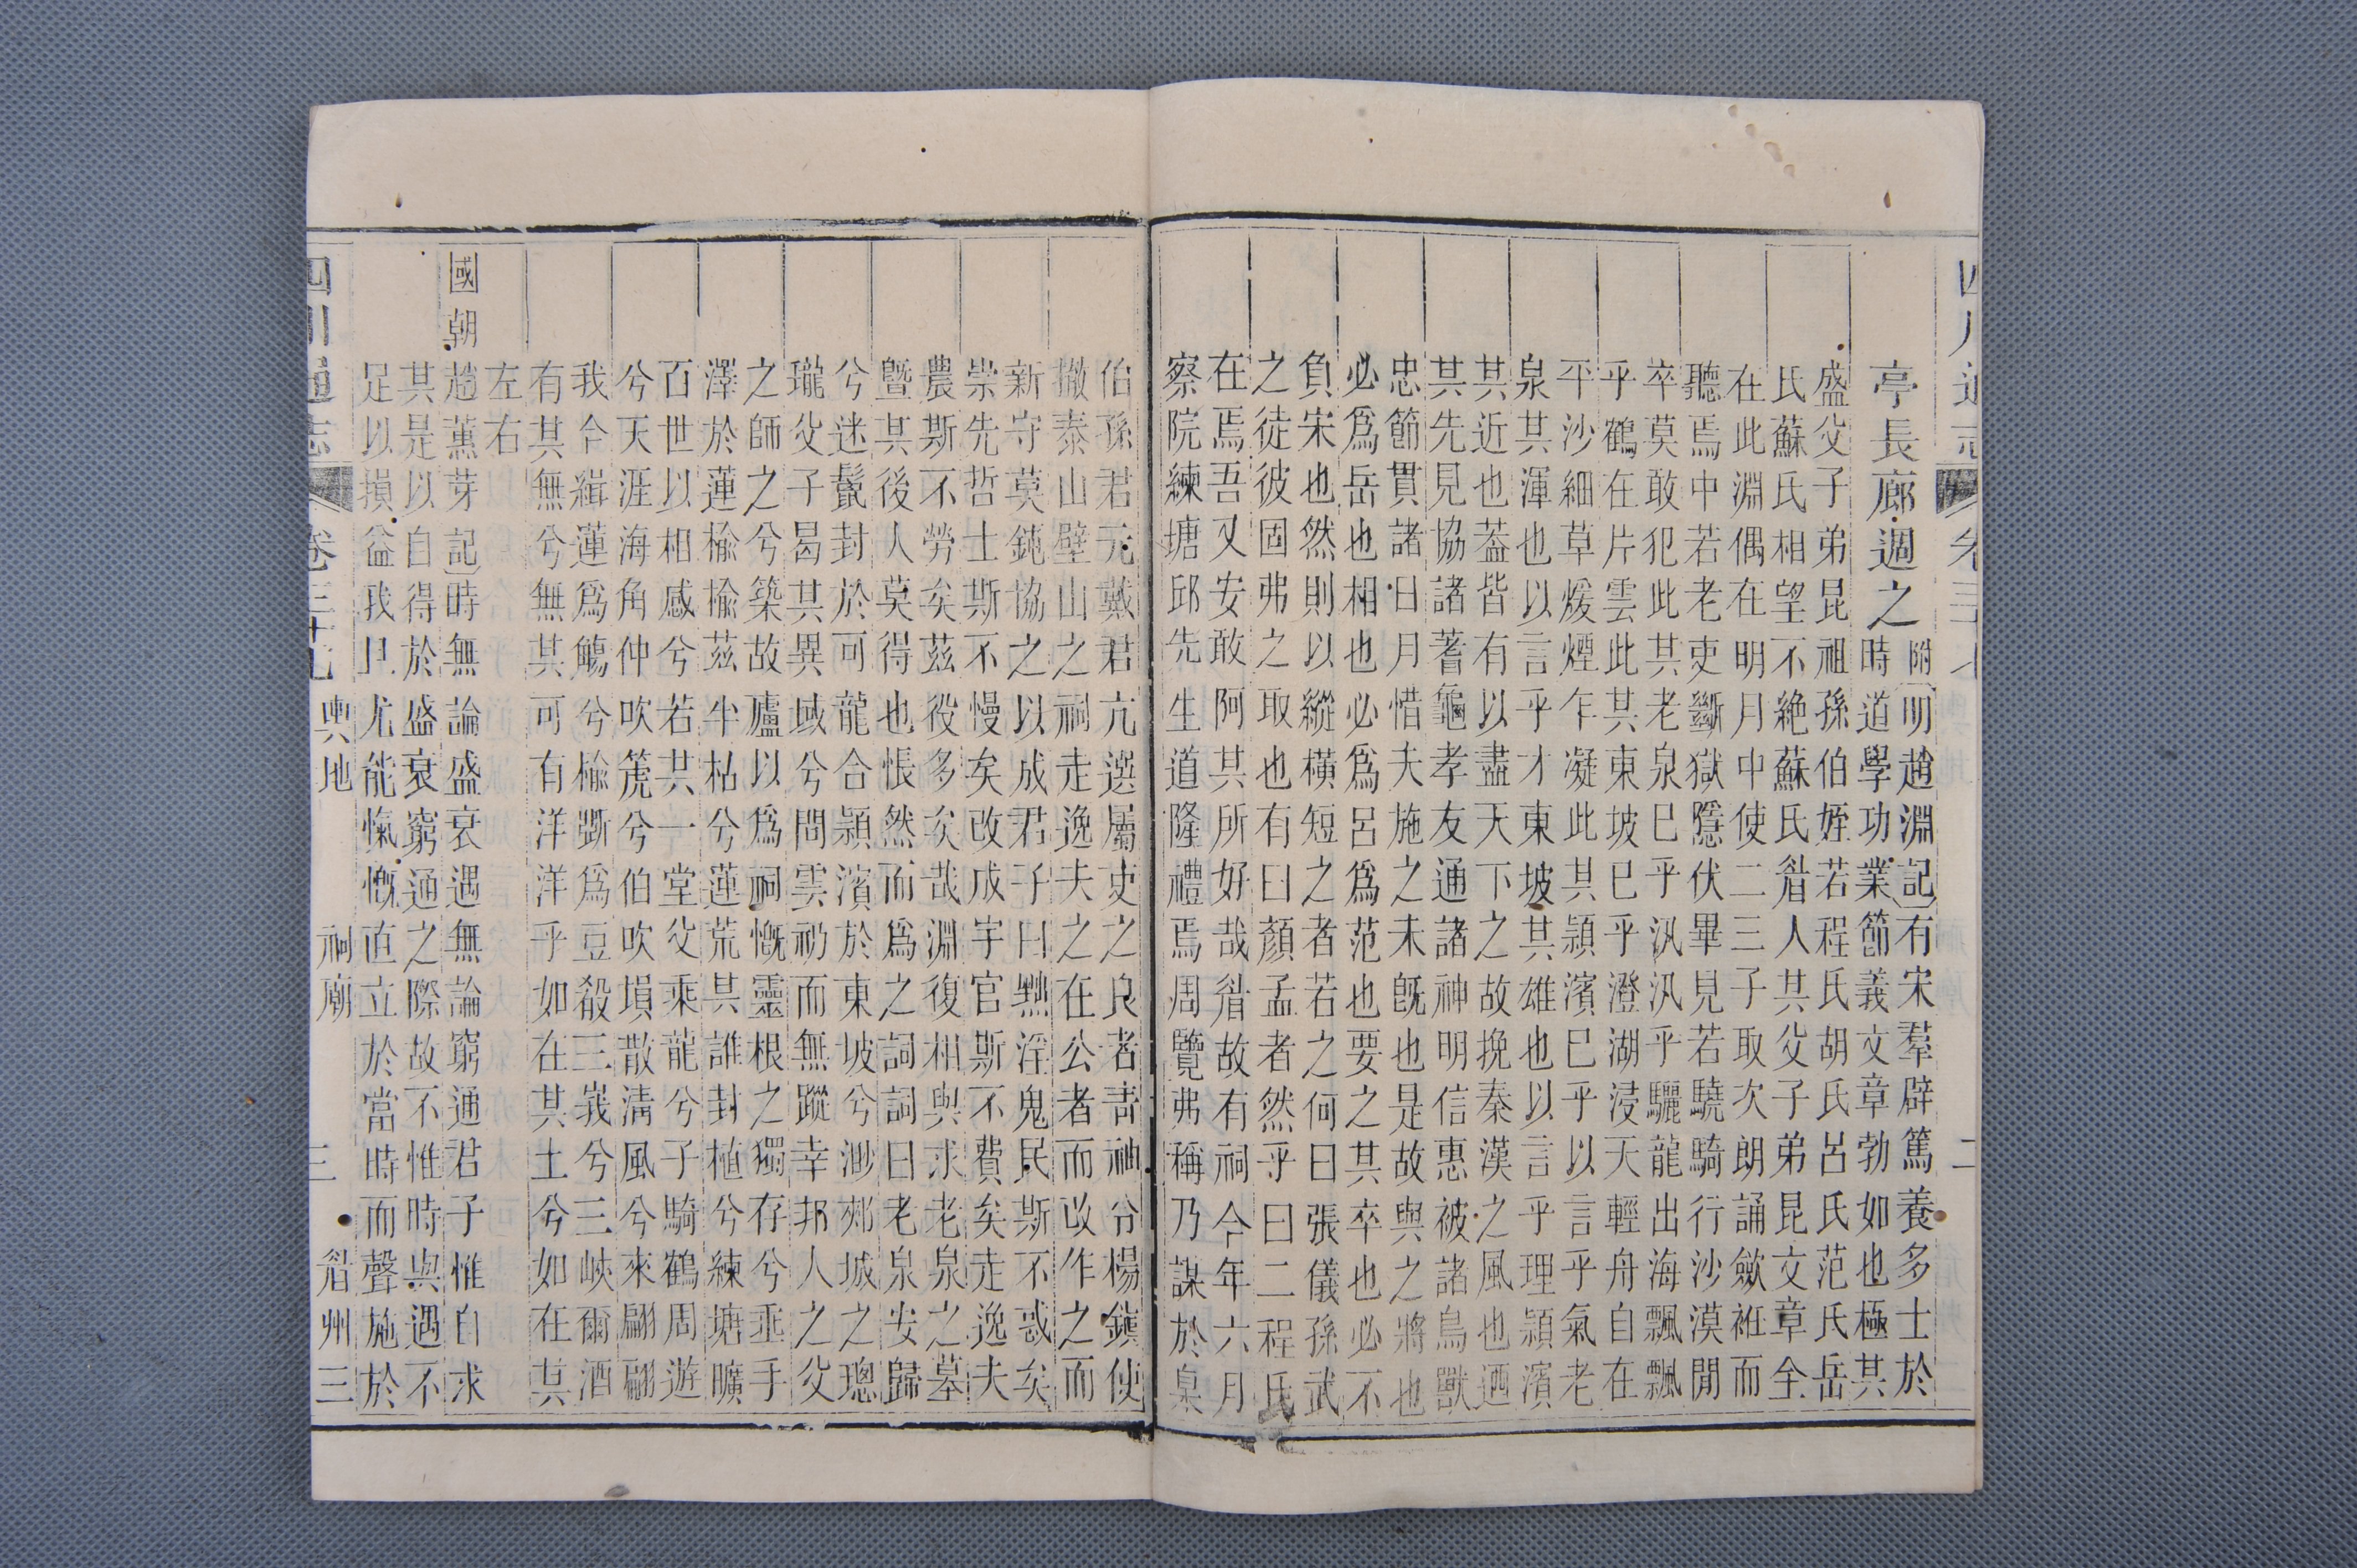 四川通志 卷三十七 二
亭長廊週之 附
明趙淵記有宋羣辟篤養多士於
時道學功業節義文章勃如也極其
盛父子弟昆祖孫伯姪若程氏胡氏呂氏范氏岳
氏蘇氏相望不絶蘇氏眉人其父子弟昆文章全
在此淵偶在明月中使二三子取次朗誦斂袵而
聽焉中若老吏斷獄隱伏畢見若驍騎行沙漠閒
卒莫敢犯此其老泉已乎汎汎乎驪龍出海飄飄
乎鶴在片雲此其東坡已乎澄湖浸天輕舟自在
平沙細草煖煙乍凝此其潁濱已乎以言乎氣老
泉其渾也以言乎才東坡其雄也以言乎理潁濱
其近也葢皆有以盡天下之故挽秦漢之風也迺
其先見協諸蓍龜孝友通諸神明信惠被諸鳥獸
忠節貫諸日月惜夫施之未旣也是故與之將也
必爲岳也相也必爲呂爲范也要之其卒也必不
負宋也然則以縱橫短之者若之何曰張儀孫武
之徒彼固弗之取也有曰顏孟者然乎曰二程氏
在焉吾又安敢阿其所好哉眉故有祠今年六月
察院練塘邱先生道隆禮焉周覽弗稱乃謀於臬
伯孫君元戴君亢選屬吏之良者靑神分楊鎭使
撤泰山壁山之祠走逸夫之在公者而改作之而
新守莫鈍協之以成君子曰黜淫鬼民斯不惑矣
崇先哲士斯不慢矣改成宇官斯不費矣走逸夫
農斯不勞矣茲役多矣哉淵復相與求老泉之墓
曁其後人莫得也悵然而爲之詞詞曰老泉安歸
兮迷鬣封於可龍合潁濱於東坡兮渺郟城之璁
瓏父子曷其異域兮問雲礽而無蹤幸邦人之父
之師之兮築故廬以爲祠慨靈根之獨存兮垂手
澤於蓮楡楡茲半枯兮蓮荒其誰封植兮練塘曠
百世以相感兮若共一堂父乘龍兮子騎鶴周遊
兮天涯海角仲吹篪兮伯吹塤散淸風兮來翩翩
我今緝蓮爲觴兮楡斲爲豆殺三峩兮三峽爾酒
有其無兮無其可有洋洋乎如在其土兮如在其
左右
國朝趙蕙芽記時無論盛衰遇無論窮通君子惟自求
其是以自得於盛衰窮通之際故不惟時與遇不
足以損益我且尤能慨慨直立於當時而聲施於
四川通志 卷三十七 輿地 祠廟 三 眉州三